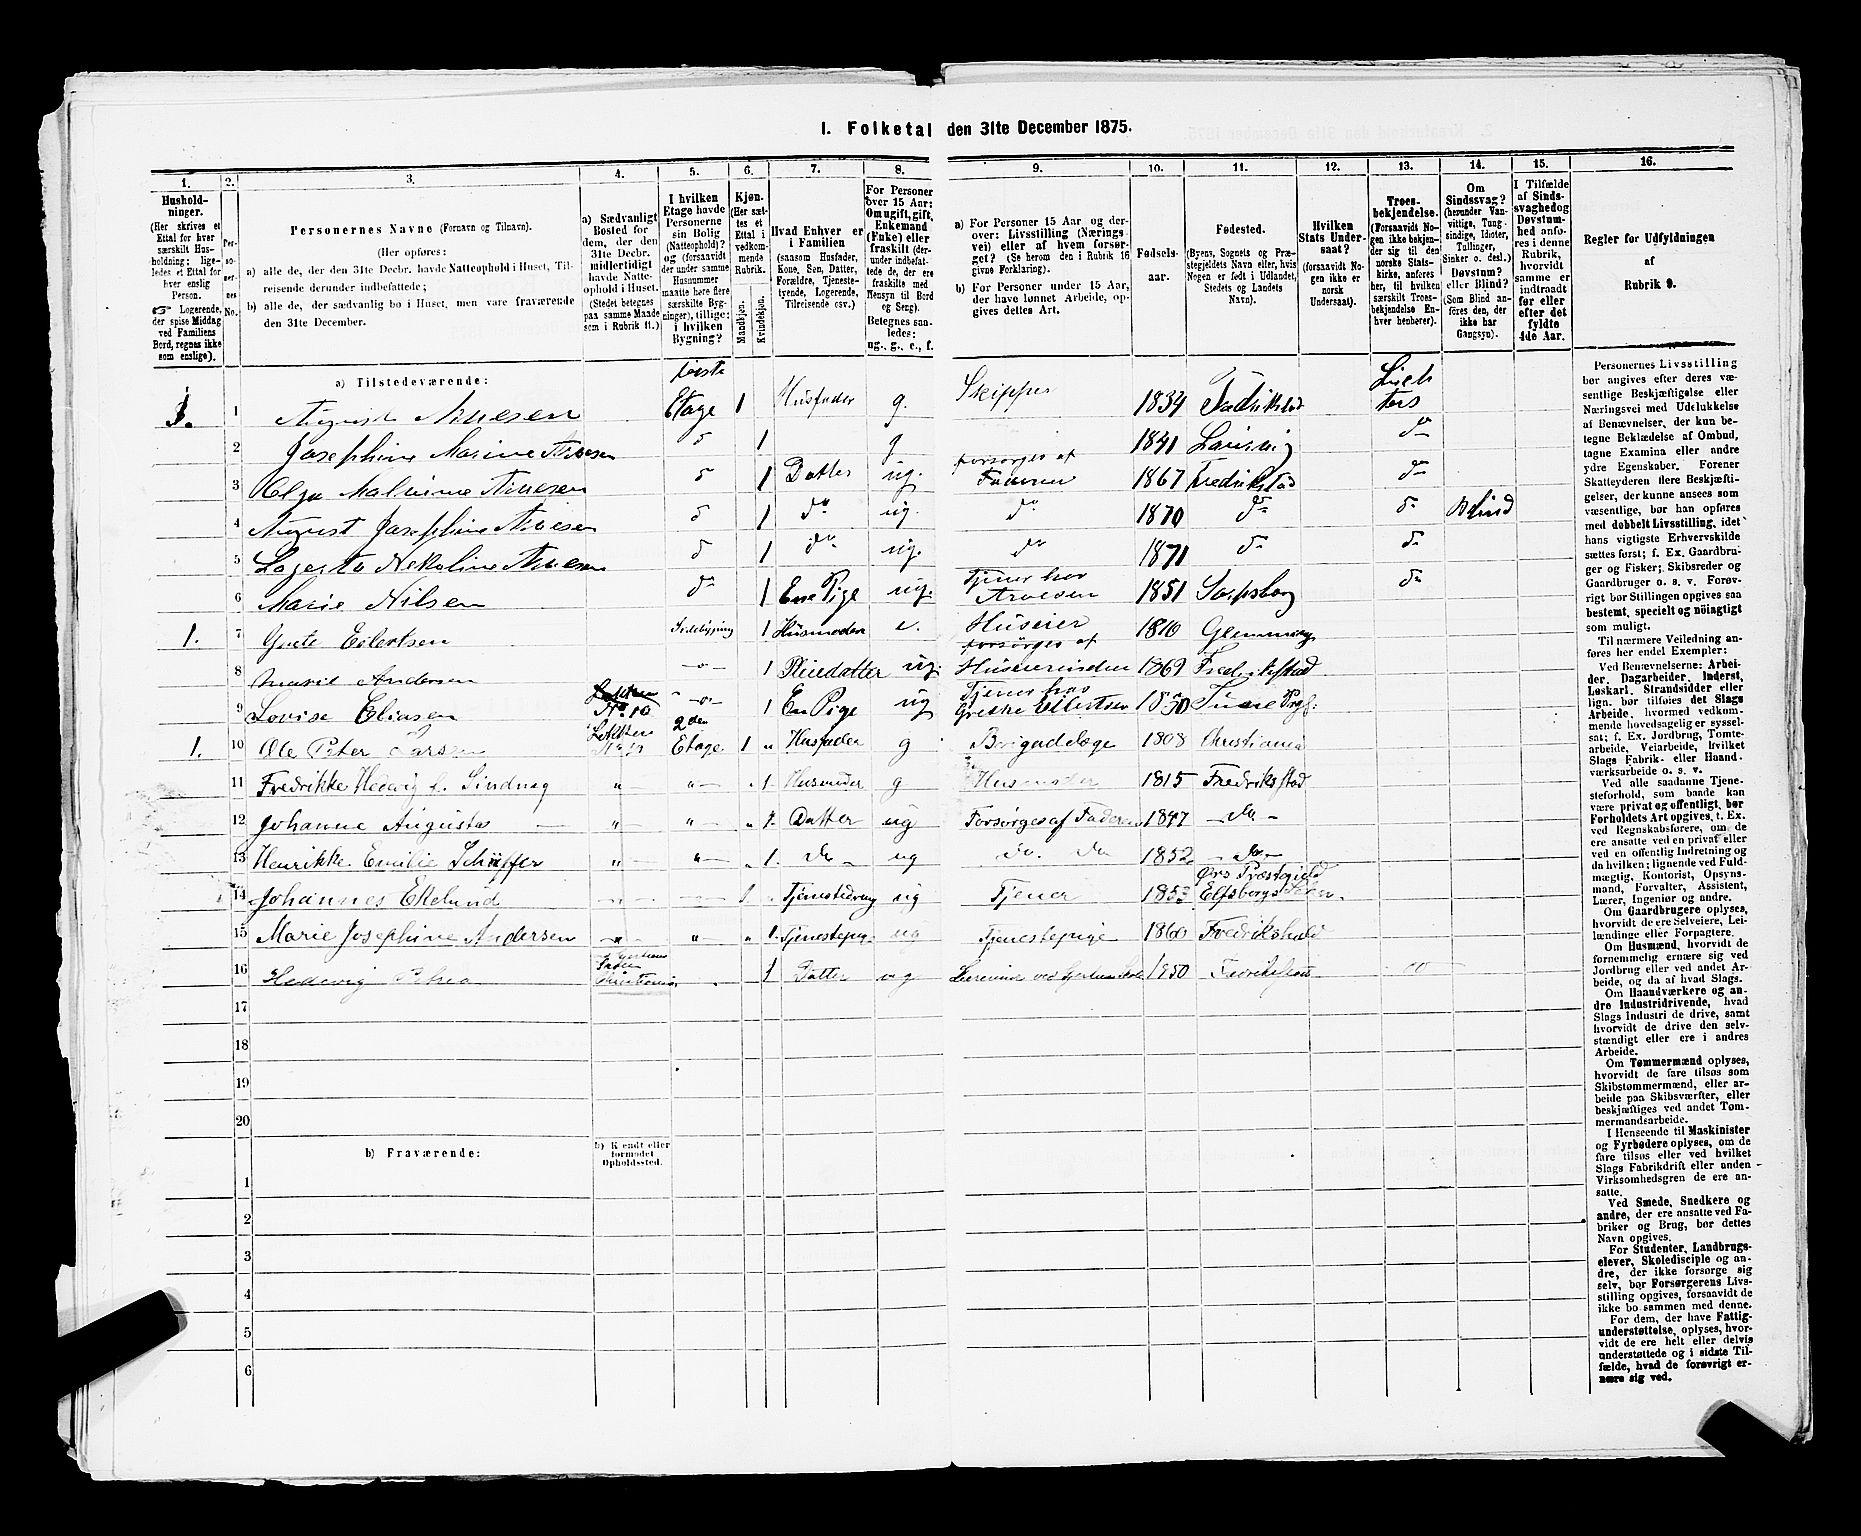 1. Folketal den 31te December 1875.
1. 2. 3. 4. 5. 6. 7. 8. 9. 10. 11. 12. 13. 14. 15. 16.
Hushold-
ninger.
(Her skrives et
Ettal for hver
særskilt Hus-
holdning; lige-
ledes et Ettal for
hver enslig
Person.
Logerende,
der spise Middag
ved Familiens
Bord, regnes ikke
som enslige).
Per-
so-
ner-
nes
No.
Personernes Navne (Fornavn og Tilnavn).
(Her opføres:
a) alle de, der den 31te Decbr. havde Natteophold i Huset, Til-
reisende derunder indbefattede;
b) alle de, der sædvanlig bo i Huset, men vare fraværende
den 31te December.
a) Sædvanligt
Bosted for
dem, der den
31te Decbr.
midlertidigt
havde Natte-
ophold i Huset.
(Stedet betegnes
paa samme Maade
som i Rubrik 11.)
I hvilken
Etage havde
Personerne
sin Bolig
(Natteophold)?
og (forsaavidt
der under samme
Husnummer
maatte høre flere
særskilte Byg-
ninger), tillige:
i hvilken
Bygning?
Kjøn.
(Her sæt-
tes et
Ettal i
vedkom-
mende
Rubrik.
Mandkjøn.
Kvindekjøn.
Hvad Enhver er
i Familien
(saasom Husfader,
Kone, Søn, Datter,
Forældre, Tjeneste-
tyende, Logerende,
Tilreisende osv.)
For Personer
over 15 Aar:
Om ugift, gift,
Enkemand
(Enke) eller
fraskilt (der-
under indbefat-
tede de, der ere
fraskilte med
Hensyn til Bord
og Seng).
Betegnes saa-
ledes:
ug., g., e., f.
a) For Personer 15 Aar og der-
over: Livsstilling (Nærings-
vei) eller af hvem forsør-
get? (Se herom den i Rubrik 16
givne Forklaring).
b) For Personer under 15 Aar,
der have lønnet Arbeide, op-
gives dettes Art.
Fødsels-
aar.
Fødested.
(Byens, Sognets og Præ-
stegjeldets Navn eller, hvis
Nogen er født i Udlandet,
Stedets og Landets
Navn).
Hvilken
Stats Under-
saat?
(forsaavidt No-
gen ikke er
norsk
Undersaat).
Troes-
bekjendelse.
(Forsaavidt No-
gen ikke bekjen-
der sig til den
norske Stats-
kirke, anføres
her, til hvilken
særskilt Troes-
bekjendelse En-
hver henhører).
Om
Sindssvag?
(herunder Van-
vittige, Tung-
sindige, Idioter,
Tullinger,
Sinker o. desl.)
Døvstum?
eller Blind?
(Som Blind an-
føres den, der
ikke har
Gangsyn).
I Tilfælde
af Sinds-
svaghed og
Døvstum-
hed anfø-
res i denne
Rubrik,
hvorvidt
samme er
indtraadt
før eller
efter det
fyldte
4de Aar.
Regler for Udfyldningen
af
Rubrik 9.
a) Tilstedeværende:
1. 1 August første Etage 1 Husfader g. Skipper 1834
2 Josephine Marine 1 g 1841 Laurvig do
3 Olga Malvine 1 Datter ug. forsørges af Faderen 1867 Fredrikstad do
4 August Josephine 1 do ug. do 1870 do do Blind
5 1 do ug. do 1871 do do
6 Marie Nilsen do 1 Pige ug. Tjener hos 1851 Sarpsborg do
1. 7 Eilertsen Sidebygning 1 Husmoder e. Huseier 1810
8 Marie Andersen -o- 1 Pleiedatter ug. forsørges af Huseierinden 1869 Fredrikstad
9 Lovise Eliasen No 10 -o- 1 En Pige ug Tjener hos Grethe Eilertsen Tune
1. 10 Ole Peter Larsen 2den Etage 1 " Husfader g 1808 Christiania
11 Fredrikke Hedevig f. " " " 1. Husmoder g Husmoder 1815 Fredrikstad
12 Johanne Augusta " " " 1. Datter ug Forsørges af Faderen 1847 - do -
13 Henrikke Emilie " " 1. do - ug do. do 1852 - do -
14 Johannes Ekelund 1 ug Tjener 1853 Ørs Præstegjeld Elfsborgs Lehn
15 Marie Josephine Andersen " " " 1. Tjenestepig. ug Tjenestepige 1860 Fredrikshald
16 Hedevig Petrea 1 Datter ug 1850
17
18
19
20
b) Fraværende:
b) Kjendt eller
formodet
Opholdssted.
1
2
3
4
5
6
Personernes Livsstilling
bør angives efter deres væ-
sentlige Beskjæftigelse eller
Næringsvei med Udelukkelse
af Benævnelser, der kun be-
tegne Beklædelse af Ombud,
tagne Examina eller andre
ydre Egenskaber. Forener
Skatteyderen flere Beskjæfti-
gelser, der kunne ansees som
væsentlige, bør han opføres
med dobbelt Livsstilling, idet
hans vigtigste Erhvervskilde
sættes først; f. Ex. Gaardbru-
ger og Fisker; Skibsreder og
Gaardbruger o. s. v. Forøv-
rigt bør Stillingen opgives saa
bestemt, specielt og nøiagtigt
som muligt.
Til nærmere Veiledning an-
føres her endel Exempler:
Ved Benævnelserne: Arbei-
der, Dagarbeider, Inderst,
Løskarl, Strandsidder eller
lign. bør tilføies det Slags
Arbeide, hvormed vedkom-
mende hovedsagelig er syssel-
sat; f. Ex. Jordbrug, Tomte-
arbeide, Veiarbeide, hvilket
Slags Fabrik- eller Haand-
værksarbeide o. s. v.
Ved alle saadanne Tjene-
steforhold, som baade kan
være privat og offentligt, bør
Forholdets Art opgives, t. Ex.
ved Regnskabsførere, om de
ere ansatte ved en privat eller
ved en offentlig Indretning og
da hvilken; lignende ved Fuld-
mægtig, Kontorist, Opsyns-
mand, Forvalter, Assistent,
Lærer, Ingeniør og andre.
Om Gaardbrugere oplyses,
hvorvidt de ere Selveiere, Lei-
lændinge eller Forpagtere.
Om Husmænd, hvorvidt de
fornemmelig ernære sig ved
Jordbrug eller ved andet Ar-
beide, og da af hvad Slags.
Om Haandværkere og an-
dre Industridrivende, hvad
Slags Industri de drive, samt
hvorvidt de drive den selv-
stændigt eller ere i andres
Arbeide.
Om Tømmermænd oplyses,
hvorvidt de fare tilsøs som
Skibstømmermænd, eller ar-
beide paa Skibsværfter, eller
beskjæftiges ved andet Tøm-
mermandsarbeide.
I Henseende til Maskinister
og Fyrbødere oplyses, om de
fare tilsøs eller ved hvilket
Slags Fabrikdrift eller anden
Virksomhedsgren de ere an-
satte.
Ved Smede, Snedkere og
andre, der ere ansatte ved Fa-
briker og Brug, bør dettes
Navn opgives.
For Studenter, Landbrugs-
elever, Skoledisciple og an-
dre, der ikke forsørge sig
selv, bør Forsørgerens Livs-
stilling opgives, forsaavidt de
ikke bo sammen med denne.
For dem, der have Fattig-
understøttelse, oplyses, hvor-
vidt de ere helt eller delvis
understøttede og i sidste Til-
fælde, hvad de forøvrigt er-
nære sig ved.